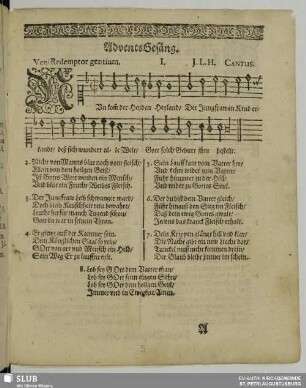 Advents Gesäng.
Veni Redemptor gentium. I. J. L. H. CANTUS.
NUn kom̃ der Heyden Heylandt/ Der Jungfrawen Kind er-
kandt/ deß sich wundert al- le Welt/ Gott solch Geburt ihm bestelt.
2. Nicht von Manns blut noch vom fleisch/
Allein von dem heilgen Geist/
Ist Gotts Wort worden ein Mensch/
Und blüt ein Frucht Weibes Fleisch.
3. Der Jungfraw leib schwanger ward/
Doch bleib Keuschheit rein bewahrt/
Leucht herfür manch Tugend schon/
Gott da war in seinem Thron.
4. Er gieng auß der Kammer sein/
Dem Königlichen Saal so rein/
Gott von art und Mensch ein Held/
Sein Weg Er zu lauffen eilt.
5. Sein Lauff kam vom Vater her/
Und kehrt wider zum Vater/
Fuhr hinunter zu der Höll/
Und wider zu Gottes Stuel.
6. Der du bist dem Vater gleich/
Führ hinauß den Sieg im Fleisch/
Daß dein ewig Gotts gwalt/
In uns das kranck Fleisch erhalt.
7. Dein Kripen gläntzt hell und klar/
Die Nacht gibt ein new Liecht dar/
Tunckel muß nicht kommen drein/
Der Glaub bleibt immer im schein.
8. Lob sey GOtt dem Vater thon/
Lob sey GOtt seim eingen Sohn/
Lob sey GOtt dem heilgen Geist/
Immer und in Ewigkeit/ Amen.
A
SLUB
Wir führen Wissen.
EV.-LUTH. KIRCHGEMEINDE
ST. PETRI AUGUSTUSBURG